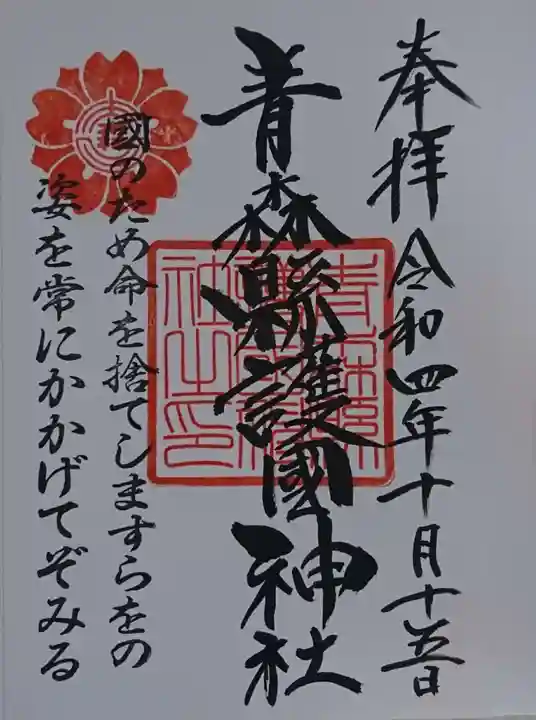 奉拝 令和四年十月十五日
青森縣護國神社
國のため命を捨てしますらをの
姿を常にかかげてぞみる